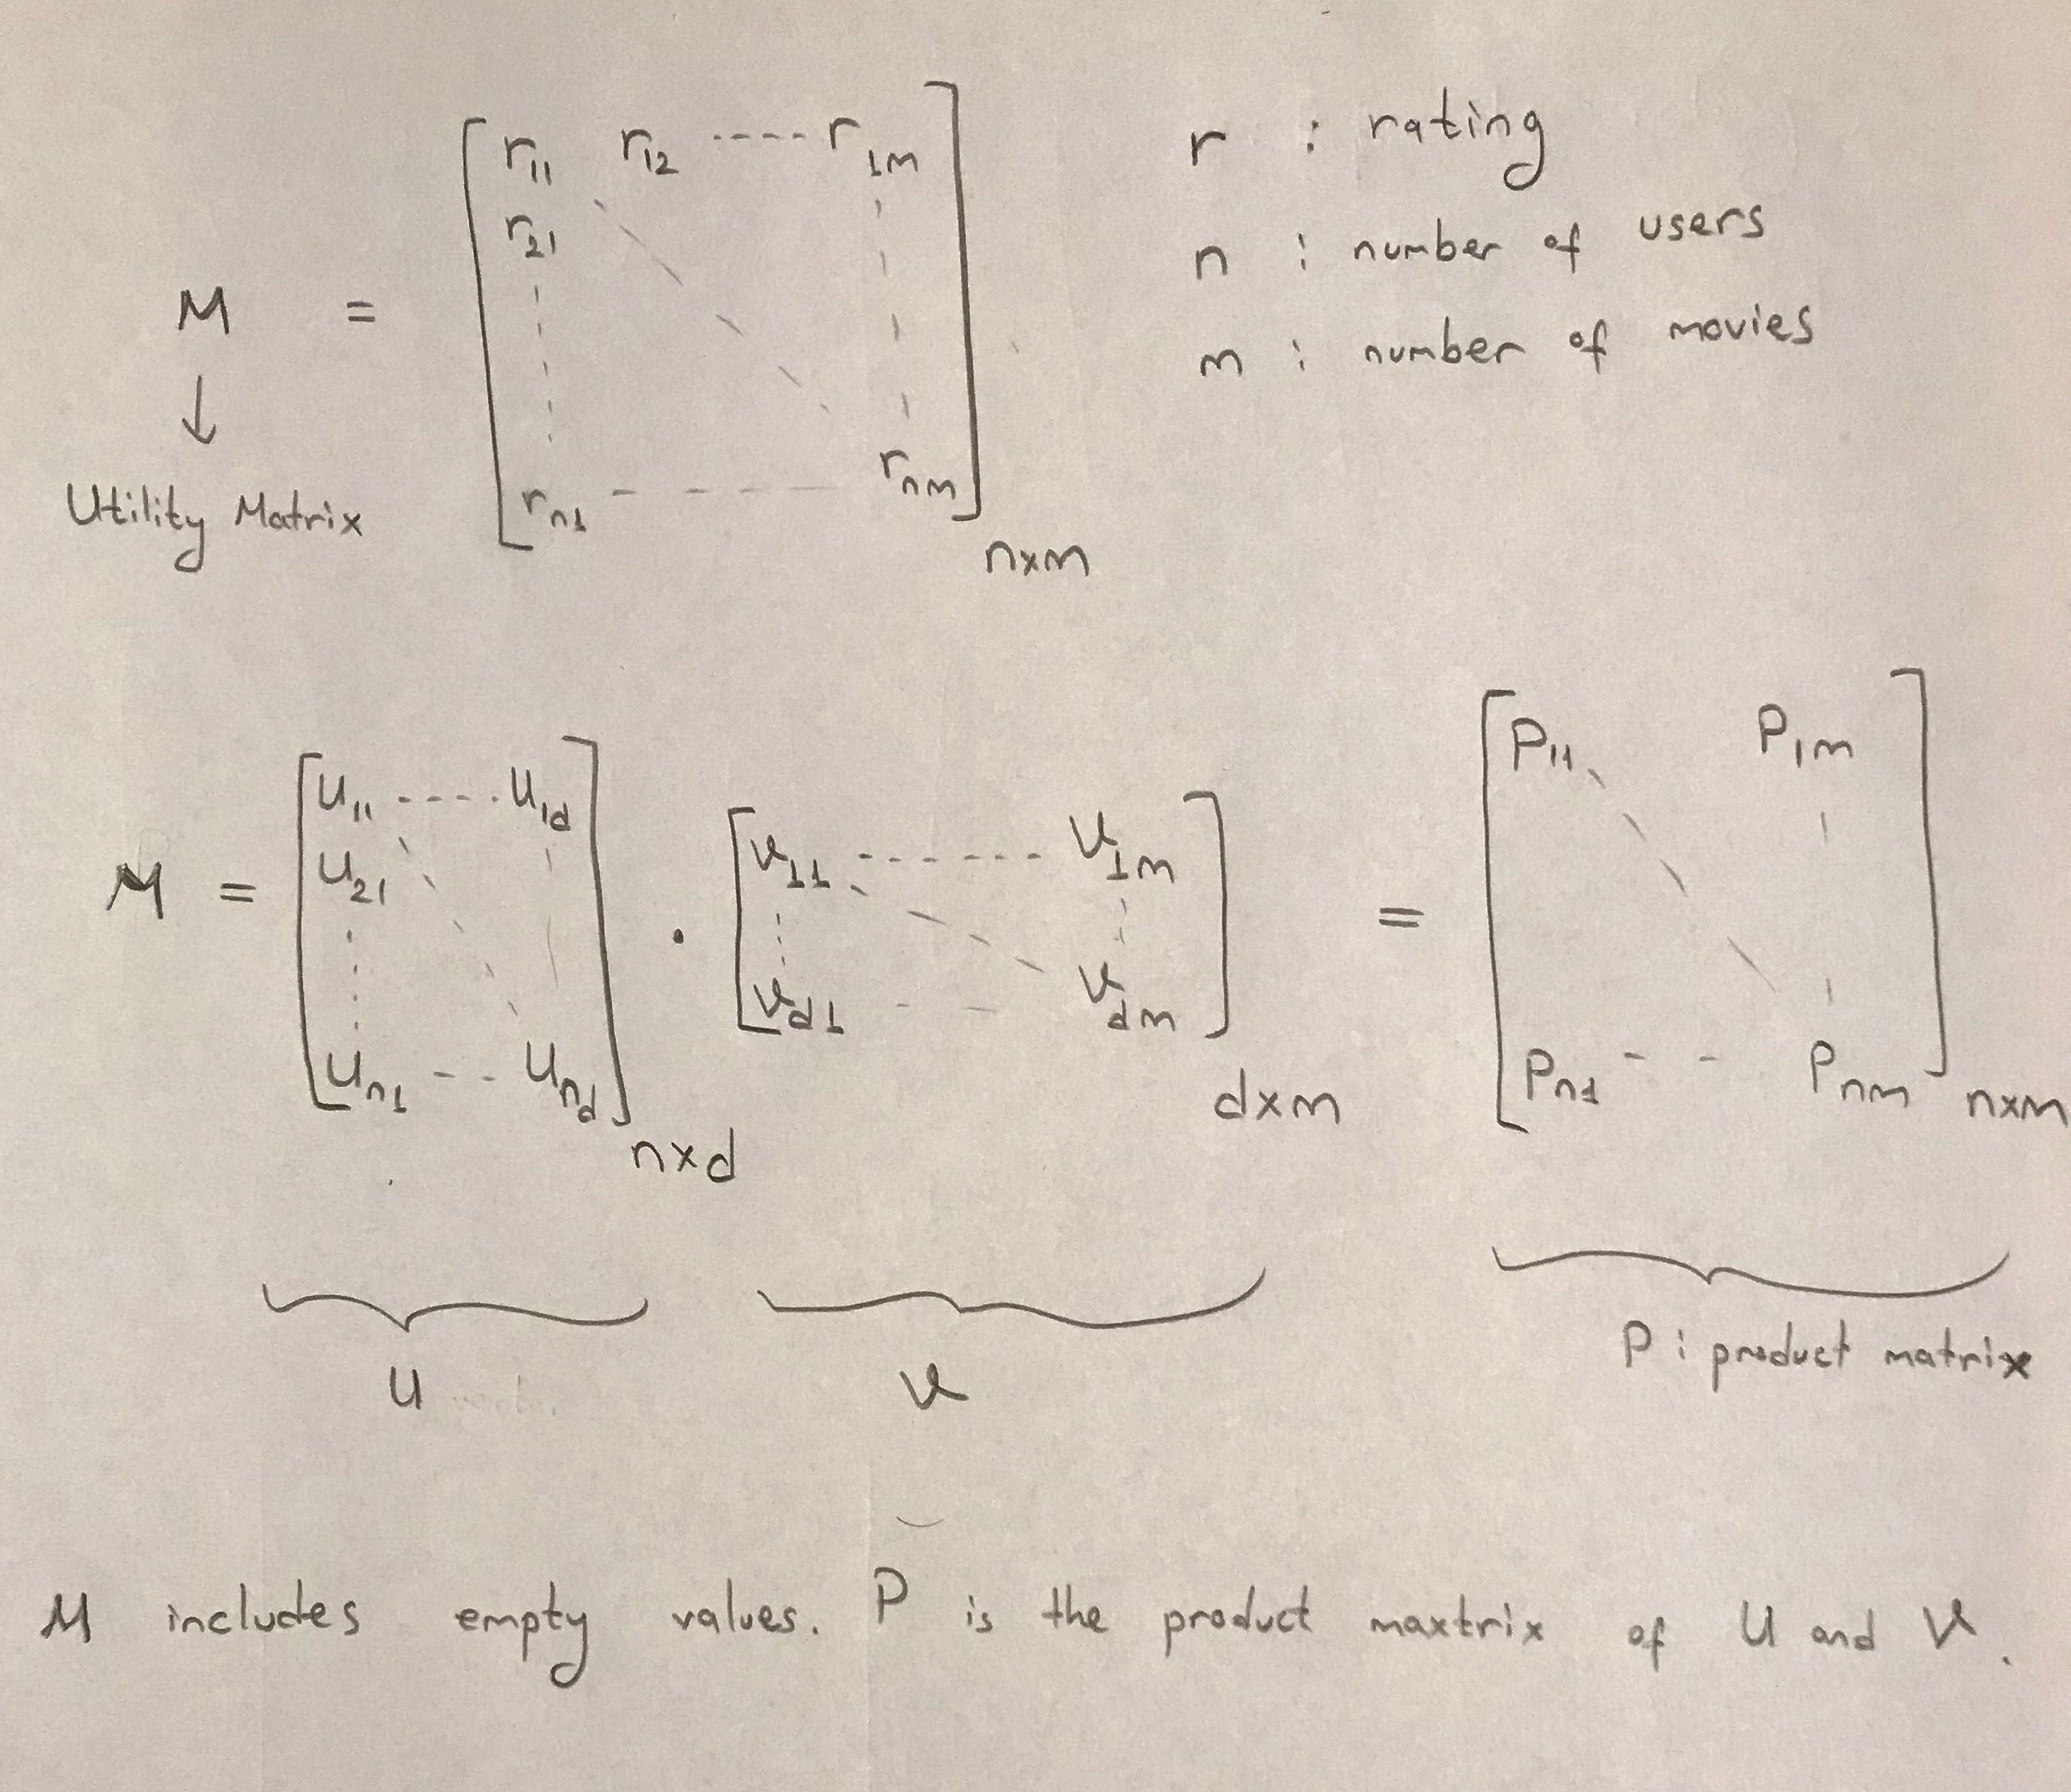 r11 r12 ---- r1m
r21
M =
rn1 - - - - rnm
n×m
↓
Utility Matrix
r : rating
n : number of users
m : number of movies
M = [u11 ---- u1d
u21
un1 -- und] n×d
. [v11 ------ v1m
vd1 - - vdm] d×m
= [P11 P1m
Pn1 - - Pnm] n×m
U
V
P : product matrix
M includes empty values. P is the product maxtrix of U and V.